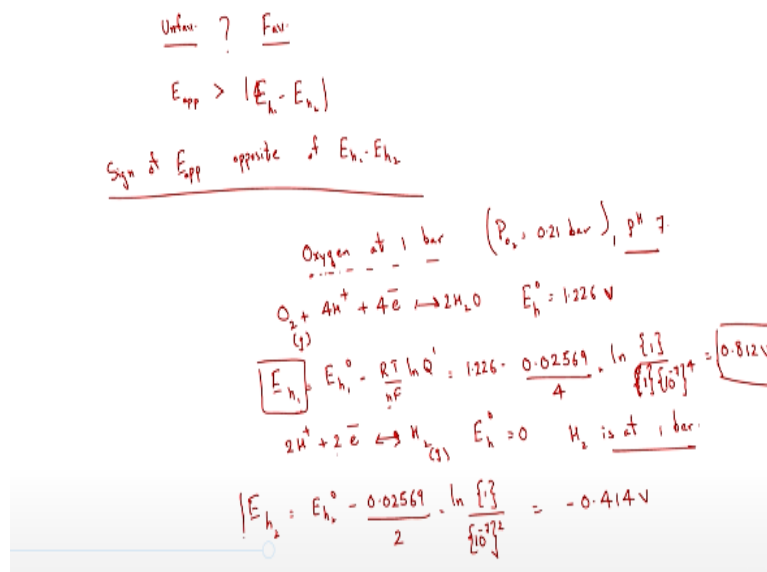 Unfav. ? Fav.
E_app > |E_h₁ - E_h₂|
Sign of E_app opposite of E_h₁ - E_h₂
Oxygen at 1 bar (P_O₂, 0.21 bar), pH 7.
O₂(g) + 4H⁺ + 4e⁻ ↔ 2H₂O E_h° = 1.226 V
E_h₁ = E_h₁° - RT/nF ln Q' = 1.226 - 0.02569/4 . ln {1}/{1}{10⁻⁷}⁴ = 0.812 V
2H⁺ + 2e⁻ ↔ H₂(g) E_h° = 0 H₂ is at 1 bar.
E_h₂ = E_h₂° - 0.02569/2 . ln {1}/{10⁻⁷}² = -0.414 V